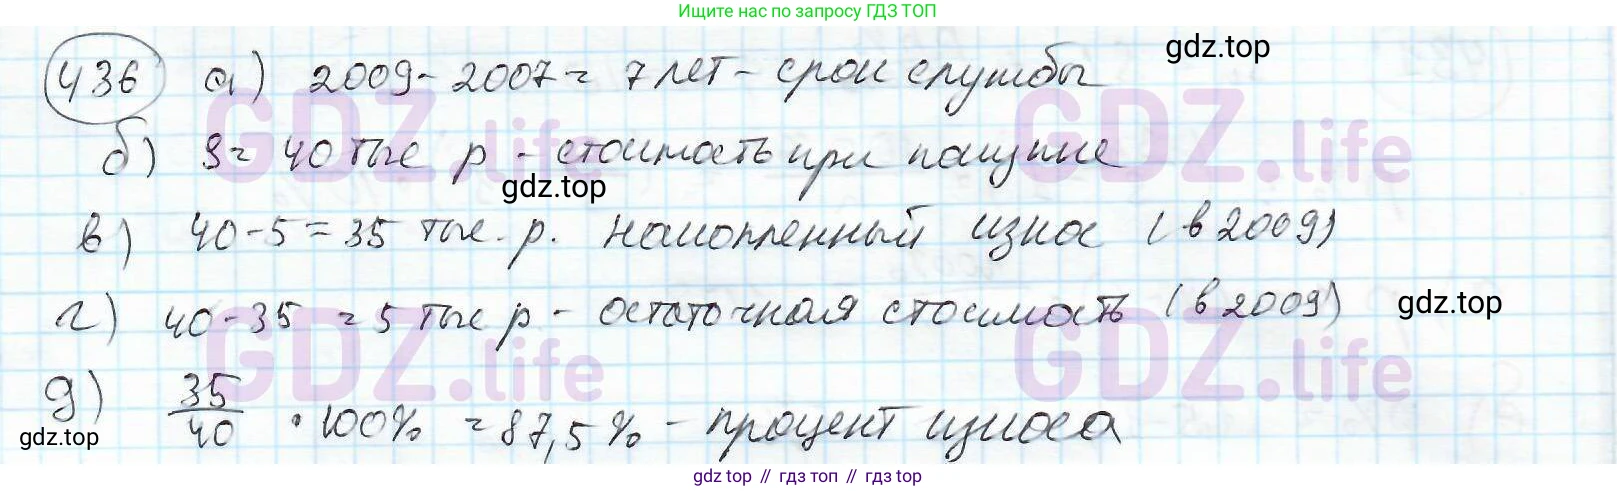 Ищите нас по запросу ГДЗ ТОП
gdz.top
436 а) 2009 - 2007 = 7 лет - срок службы
б) S = 40 тыс р - стоимость при покупке
gdz.top
в) 40 - 5 = 35 тыс. р. накопленный износ (в 2009)
г) 40 - 35 = 5 тыс р - остаточная стоимость (в 2009)
gdz.top
д) 35/40 · 100% = 87,5 % - процент износа
gdz.top
GDZ.life GDZ.life
GDZ.life GDZ.life
gdz top // гдз топ // гдз top